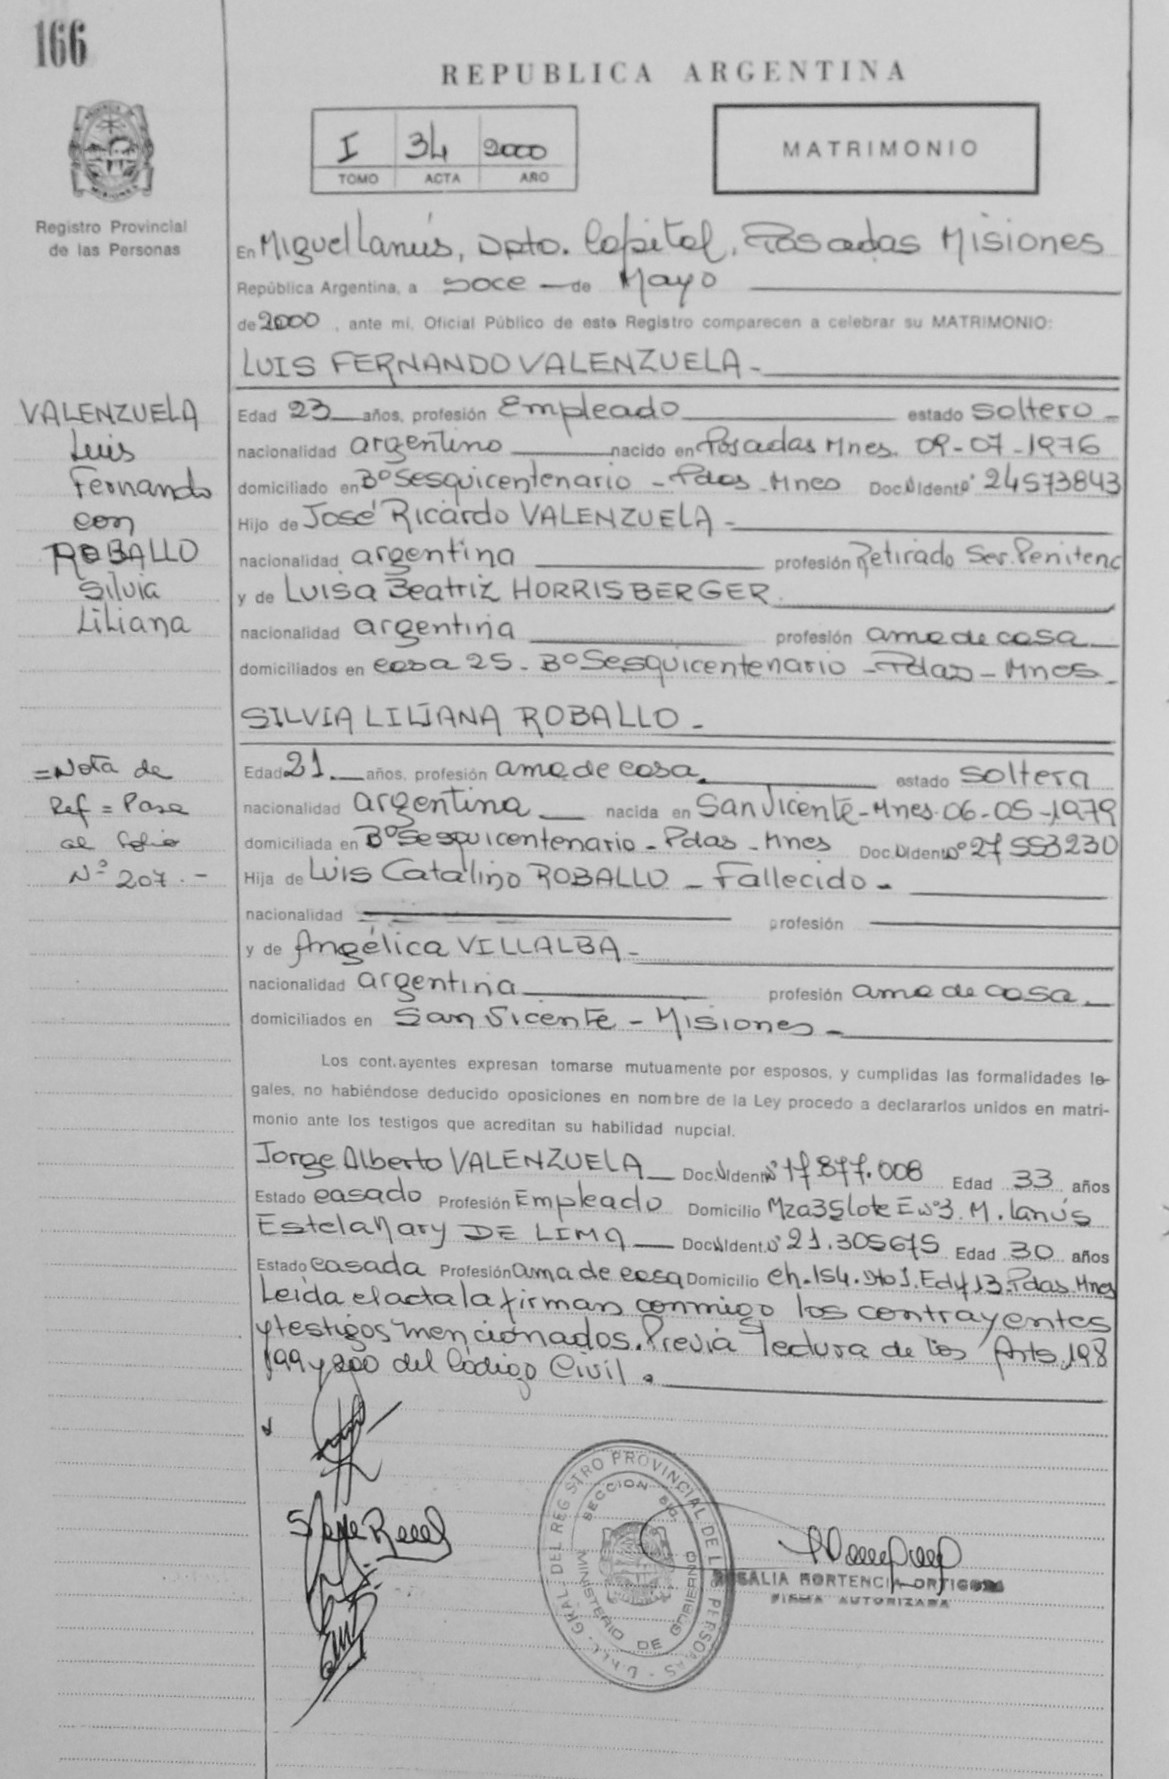 166
REPUBLICA ARGENTINA
I 34 2000
TOMO ACTA AÑO
MATRIMONIO
Registro Provincial
de las Personas
En Miguel Lanús, Dpto. Capital, Posadas Misiones
República Argentina, a Doce de Mayo
de 2000, ante mí, Oficial Público de este Registro comparecen a celebrar su MATRIMONIO:
LUIS FERNANDO VALENZUELA-
VALENZUELA
Luis
Fernando
con
ROBALLO
Silvia
Liliana
Edad 23 años, profesión Empleado estado soltero
nacionalidad argentino nacido en Posadas Mnes. 09-07-1976
domiciliado en Bº Sesquicentenario - Pdas - Mnes Doc. N Ident. Nº 24573843
Hijo de José Ricardo VALENZUELA-
nacionalidad argentina profesión Retirado Ser. Penitenc
y de Luisa Beatriz HORRISBERGER
nacionalidad argentina profesión ama de casa
domiciliados en casa 25 - Bº Sesquicentenario - Pdas - Mnes -
SILVIA LILIANA ROBALLO -
=Nota de
Ref = Pasa
al folio
Nº 207.-
Edad 21 años, profesión ama de casa estado soltera
nacionalidad argentina nacida en San Vicente - Mnes. 06-05-1979
domiciliada en Bº Sesquicentenario - Pdas - Mnes Doc. N Ident. Nº 27553230
Hija de Luis Catalino ROBALLO - Fallecido -
nacionalidad profesión
y de Angélica VILLALBA -
nacionalidad argentina profesión ama de casa
domiciliados en San Vicente - Misiones -
Los cont.ayentes expresan tomarse mutuamente por esposos, y cumplidas las formalidades le-
gales, no habiéndose deducido oposiciones en nombre de la Ley procedo a declararlos unidos en matri-
monio ante los testigos que acreditan su habilidad nupcial.
Jorge Alberto VALENZUELA Doc. N Ident. Nº 17.877.008 Edad 33 años
Estado casado Profesión Empleado Domicilio Mza 35 lote E Nº3. M. Lanús
Estela Mary DE LIMA Doc. N Ident. Nº 21.305675 Edad 30 años
Estado casada Profesión ama de casa Domicilio Ch. 154. Dto 1. Edif 13. Pdas. Mnes
Leida el acta la firman conmigo los contrayentes
y testigos mencionados. Previa lectura de los Arts. 198
199 y 200 del Código Civil.
GRAL DEL REGISTRO PROVINCIAL DE LAS PERSONAS
SECCION
MINISTERIO DE GOBIERNO
ROSALIA HORTENCIA ORTIGOZA
FIRMA AUTORIZADA